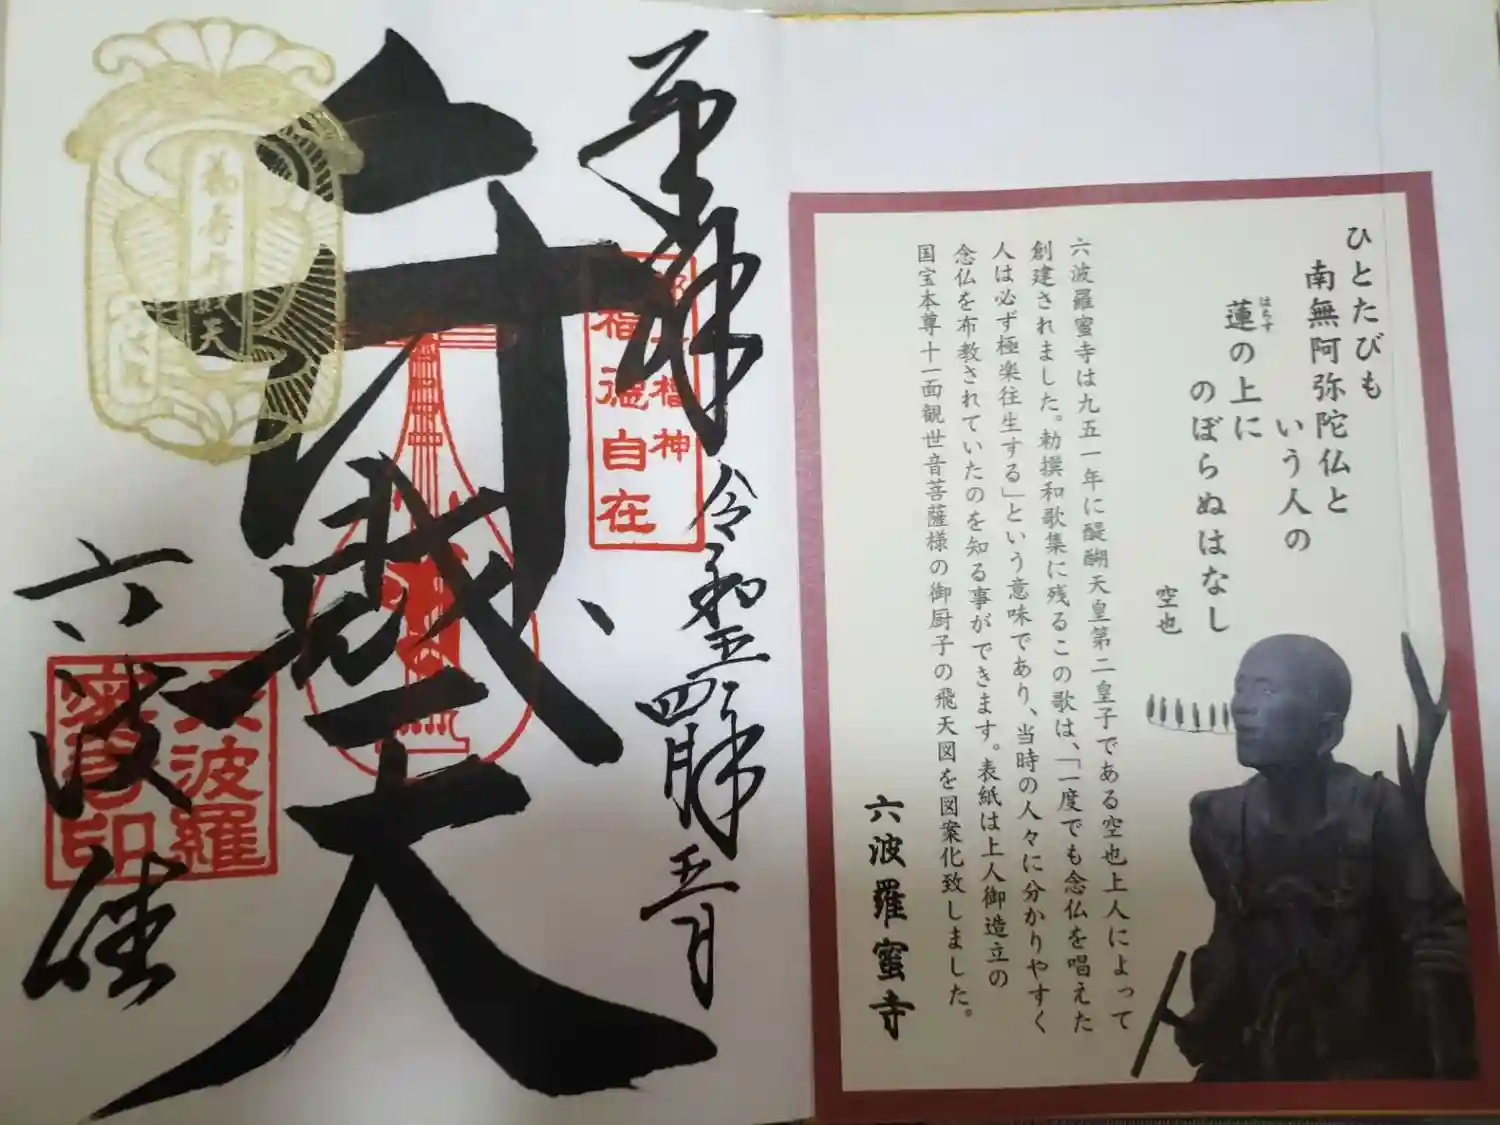 ひとたびも
南無阿弥陀仏と
いう人の
蓮の上に
はちす
のぼらぬはなし
空也
六波羅蜜寺は九五一年に醍醐天皇第二皇子である空也上人によって
創建されました。勅撰和歌集に残るこの歌は、「一度でも念仏を唱えた
人は必ず極楽往生する」という意味であり、当時の人々に分かりやすく
念仏を布教されていたのを知る事ができます。表紙は上人御造立の
国宝本尊十一面観世音菩薩様の御厨子の飛天図を図案化致しました。
六波羅蜜寺
奉拝
令和四年
五月
福神
福徳自在
弁財天
六波羅
蜜寺印